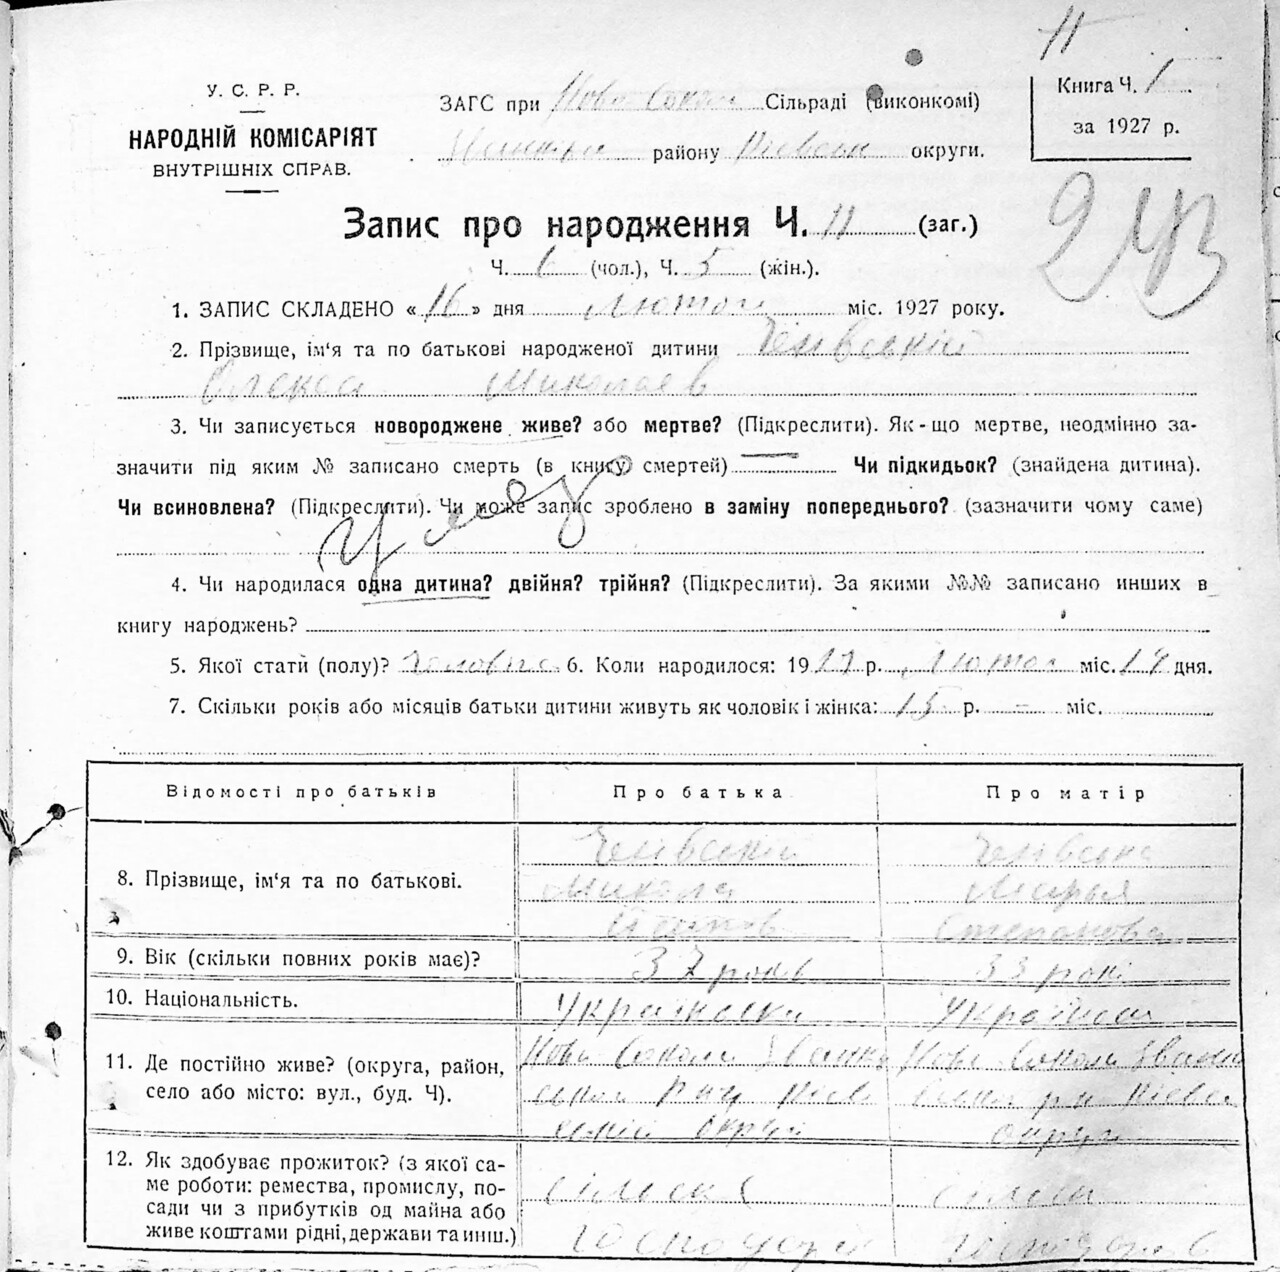 11
У. С. Р. Р.
НАРОДНІЙ КОМІСАРІЯТ
ВНУТРІШНІХ СПРАВ.
ЗАГС при Ново Сокол Сільраді (виконкомі)
району Кіевськ округи.
Книга Ч. 1
за 1927 р.
Запис про народження Ч. 11 (заг.)
243
Ч. 6 (чол.), Ч. 5 (жін.).
1. ЗАПИС СКЛАДЕНО « 16 » дня Лютого міс. 1927 року.
2. Прізвище, ім‘я та по батькові народженої дитини
Олекса Миколаев
3. Чи записується новороджене живе? або мертве? (Підкреслити). Як-що мертве, неодмінно за-
значити під яким № записано смерть (в книгу смертей) — Чи підкидьок? (знайдена дитина).
Чи всиновлена? (Підкреслити). Чи може запис зроблено в заміну попереднього? (зазначити чому саме)
4. Чи народилася одна дитина? двійня? трійня? (Підкреслити). За якими №№ записано инших в
книгу народжень?
5. Якої стати (полу)? 6. Коли народилося: 1927 р. Лютого міс. 14 дня.
7. Скільки років або місяців батьки дитини живуть як чоловік і жінка: 15 р. – міс.
Відомості про батьків Про батька Про матір
8. Прізвище, ім‘я та по батькові.
Микола Марья
Степанова
9. Вік (скільки повних років має)? 37 років 33 рокі
10. Національність. Українська Українська
11. Де постійно живе? (округа, район, село або місто: вул., буд. Ч). Ново Сокол Ново Сокол
округи округи
12. Як здобуває прожиток? (з якої са-
ме роботи: ремества, промислу, по-
сади чи з прибутків од майна або
живе коштами рідні, держави та инш.)
сільске